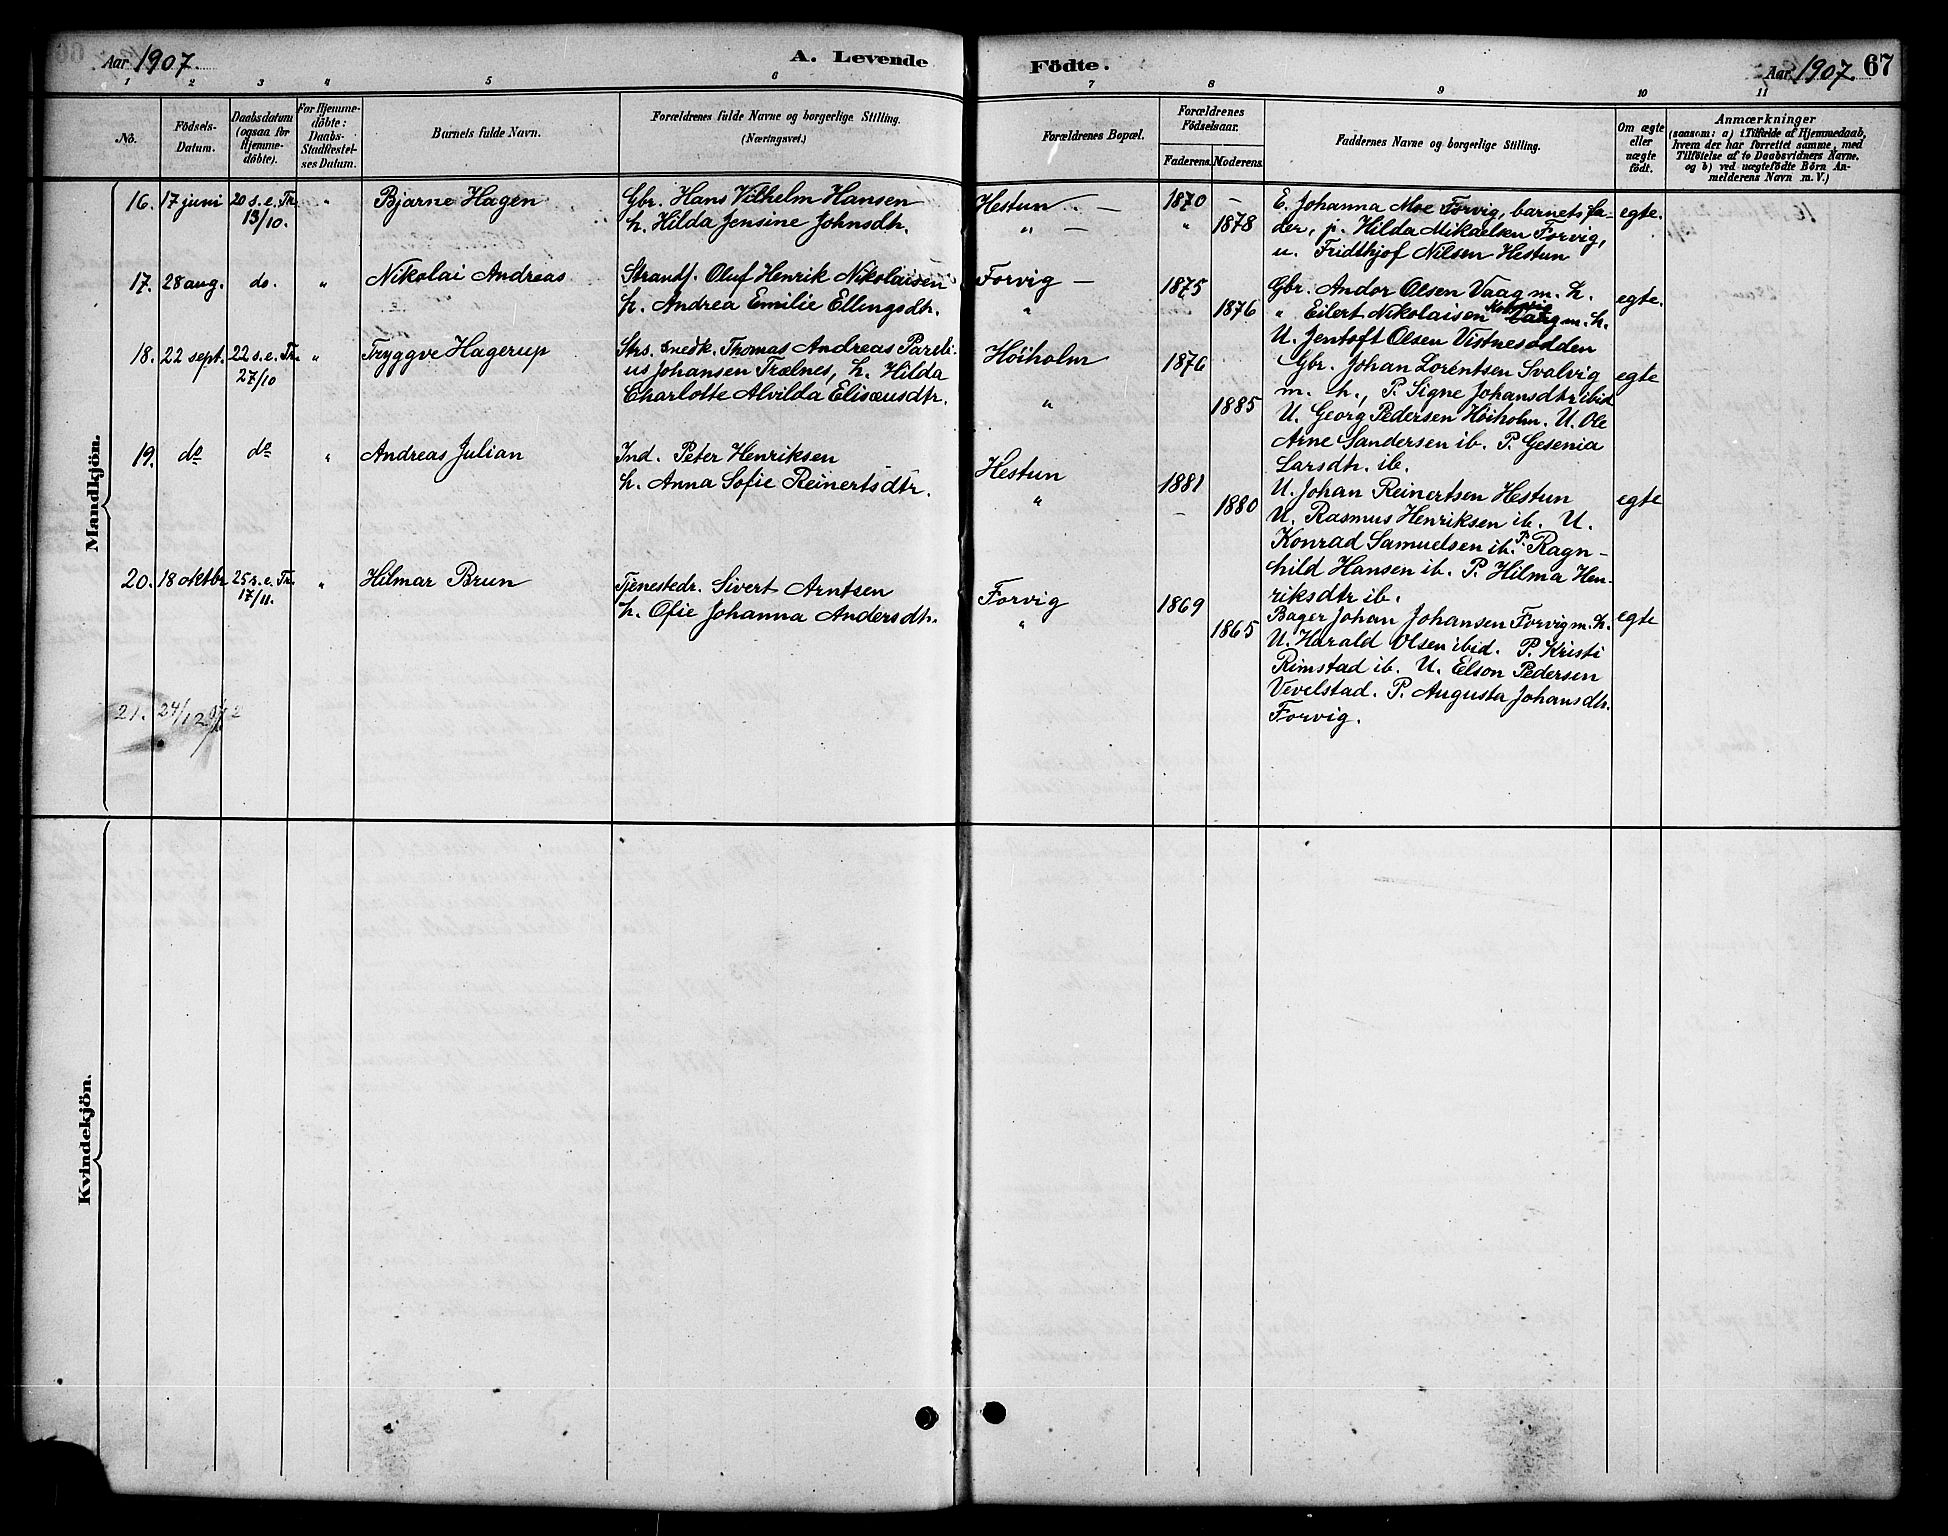 Aar 1907.
A. Levende Födte.
Aar 1907. 67
1 2 3 4 5 6 7 8 9 10 11
No.
Födsels-
Datum.
Daabsdatum
(ogsaa for
Hjemme-
döbte).
For Hjemme-
döbte:
Daabs-
Stadfæstel-
ses Datum.
Barnets fulde Navn.
Forældrenes fulde Navne og borgerlige Stilling.
(Næringsvei.)
Forældrenes Bopæl.
Forældrenes
Födselsaar.
Faderens. Moderens.
Faddernes Navne og borgerlige Stilling.
Om ægte
eller
uægte
födt.
Anmærkninger
(saasom: a) i Tilfælde af Hjemmedaab,
hvem der har forrettet samme, med
Tilföielse af to Daabsvidners Navne,
og b) ved uægtefödte Börn An-
melderens Navn m. V.)
Mandkjön.
16. 17 juni 20 s.e.Tr. 13/10. " Bjarne Hagen
Gbr. Hans Vilhelm Hansen
h. Hilda Jensine Johnsdtr.
Hestun —
" —
1870 —
" 1878
E. Johanna Moe Forvig, barnets fa-
der, p. Hilda Mikaelsen Forvig,
u. Fridthjof Nilsen Hestun
egte.
17. 28 aug. do. " Nikolai Andreas
Strandf. Oluf Henrik Nikolaisen
h. Andrea Emilie Ellingsdtr.
Forvig —
"
1875
1876
Gbr. Andor Olsen Vaag m. h.
" Eilert Nikolaisen m. h.
U. Jentoft Olsen Vistnesodden
egte.
18. 22 sept. 22 s.e.Tr. 27/10 " Tryggve Hagerup
Strs. snedk. Thomas Andreas Pareli-
us Johansen Trælnes, h. Hilda
Charlotte Alvilda Elisæusdtr.
Höiholm
"
1876
1885
Gbr. Johan Lorentsen Svalvig
m. h., P. Signe Johansdtr ibid
U. Georg Pedersen Höiholm. U. Ole
Arne Sandersen ib. P. Gesenia
Larsdtr. ib.
egte
19. do do " Andreas Julian
Ind. Peter Henriksen
h. Anna Sofie Reinertsdtr.
Hestun
"
1881
– 1880
U. Johan Reinertsen Hestun
U. Rasmus Henriksen ib. U.
Konrad Samuelsen ib. P. Ragn-
hild Hansen ib. P. Hilma Hen-
riksdtr ib.
egte
20. 18 oktbr 25 s.e.Tr. 17/11. " Hilmar Brun
Tjenestedr. Sivert Arntsen
h. Ofie Johanna Andersdtr.
Forvig
"
1869
1865
Bager Johan Johansen Forvig m. h.
U. Harald Olsen ibid. P. Kristi
Rimstad ib. U. Elson Pedersen
Vevelstad. P. Augusta Johansdtr.
Forvig.
egte
21. 24/12
Kvindekjön.